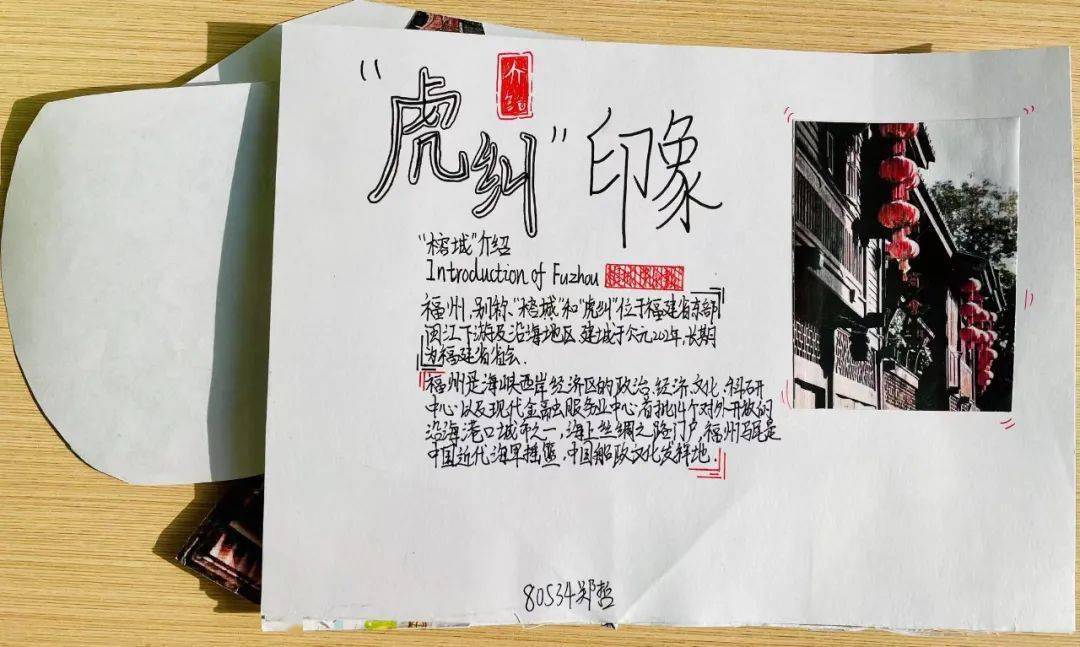 介绍
"虎纠"印象
"榕城"介绍
Introduction of Fuzhou
福州，别称、"榕城"和"虎纠"位于福建省东部
闽江下游及沿海地区.建城于公元202年，长期
为福建省省会.
福州是海峡西岸经济区的政治.经济.文化.科研
中心以及现代金融服务业中心首批14个对外开放的
沿海港口城市之一，海上丝绸之路门户，福州马尾是
中国近代海军摇篮.中国船政文化发祥地.
80534郑哲